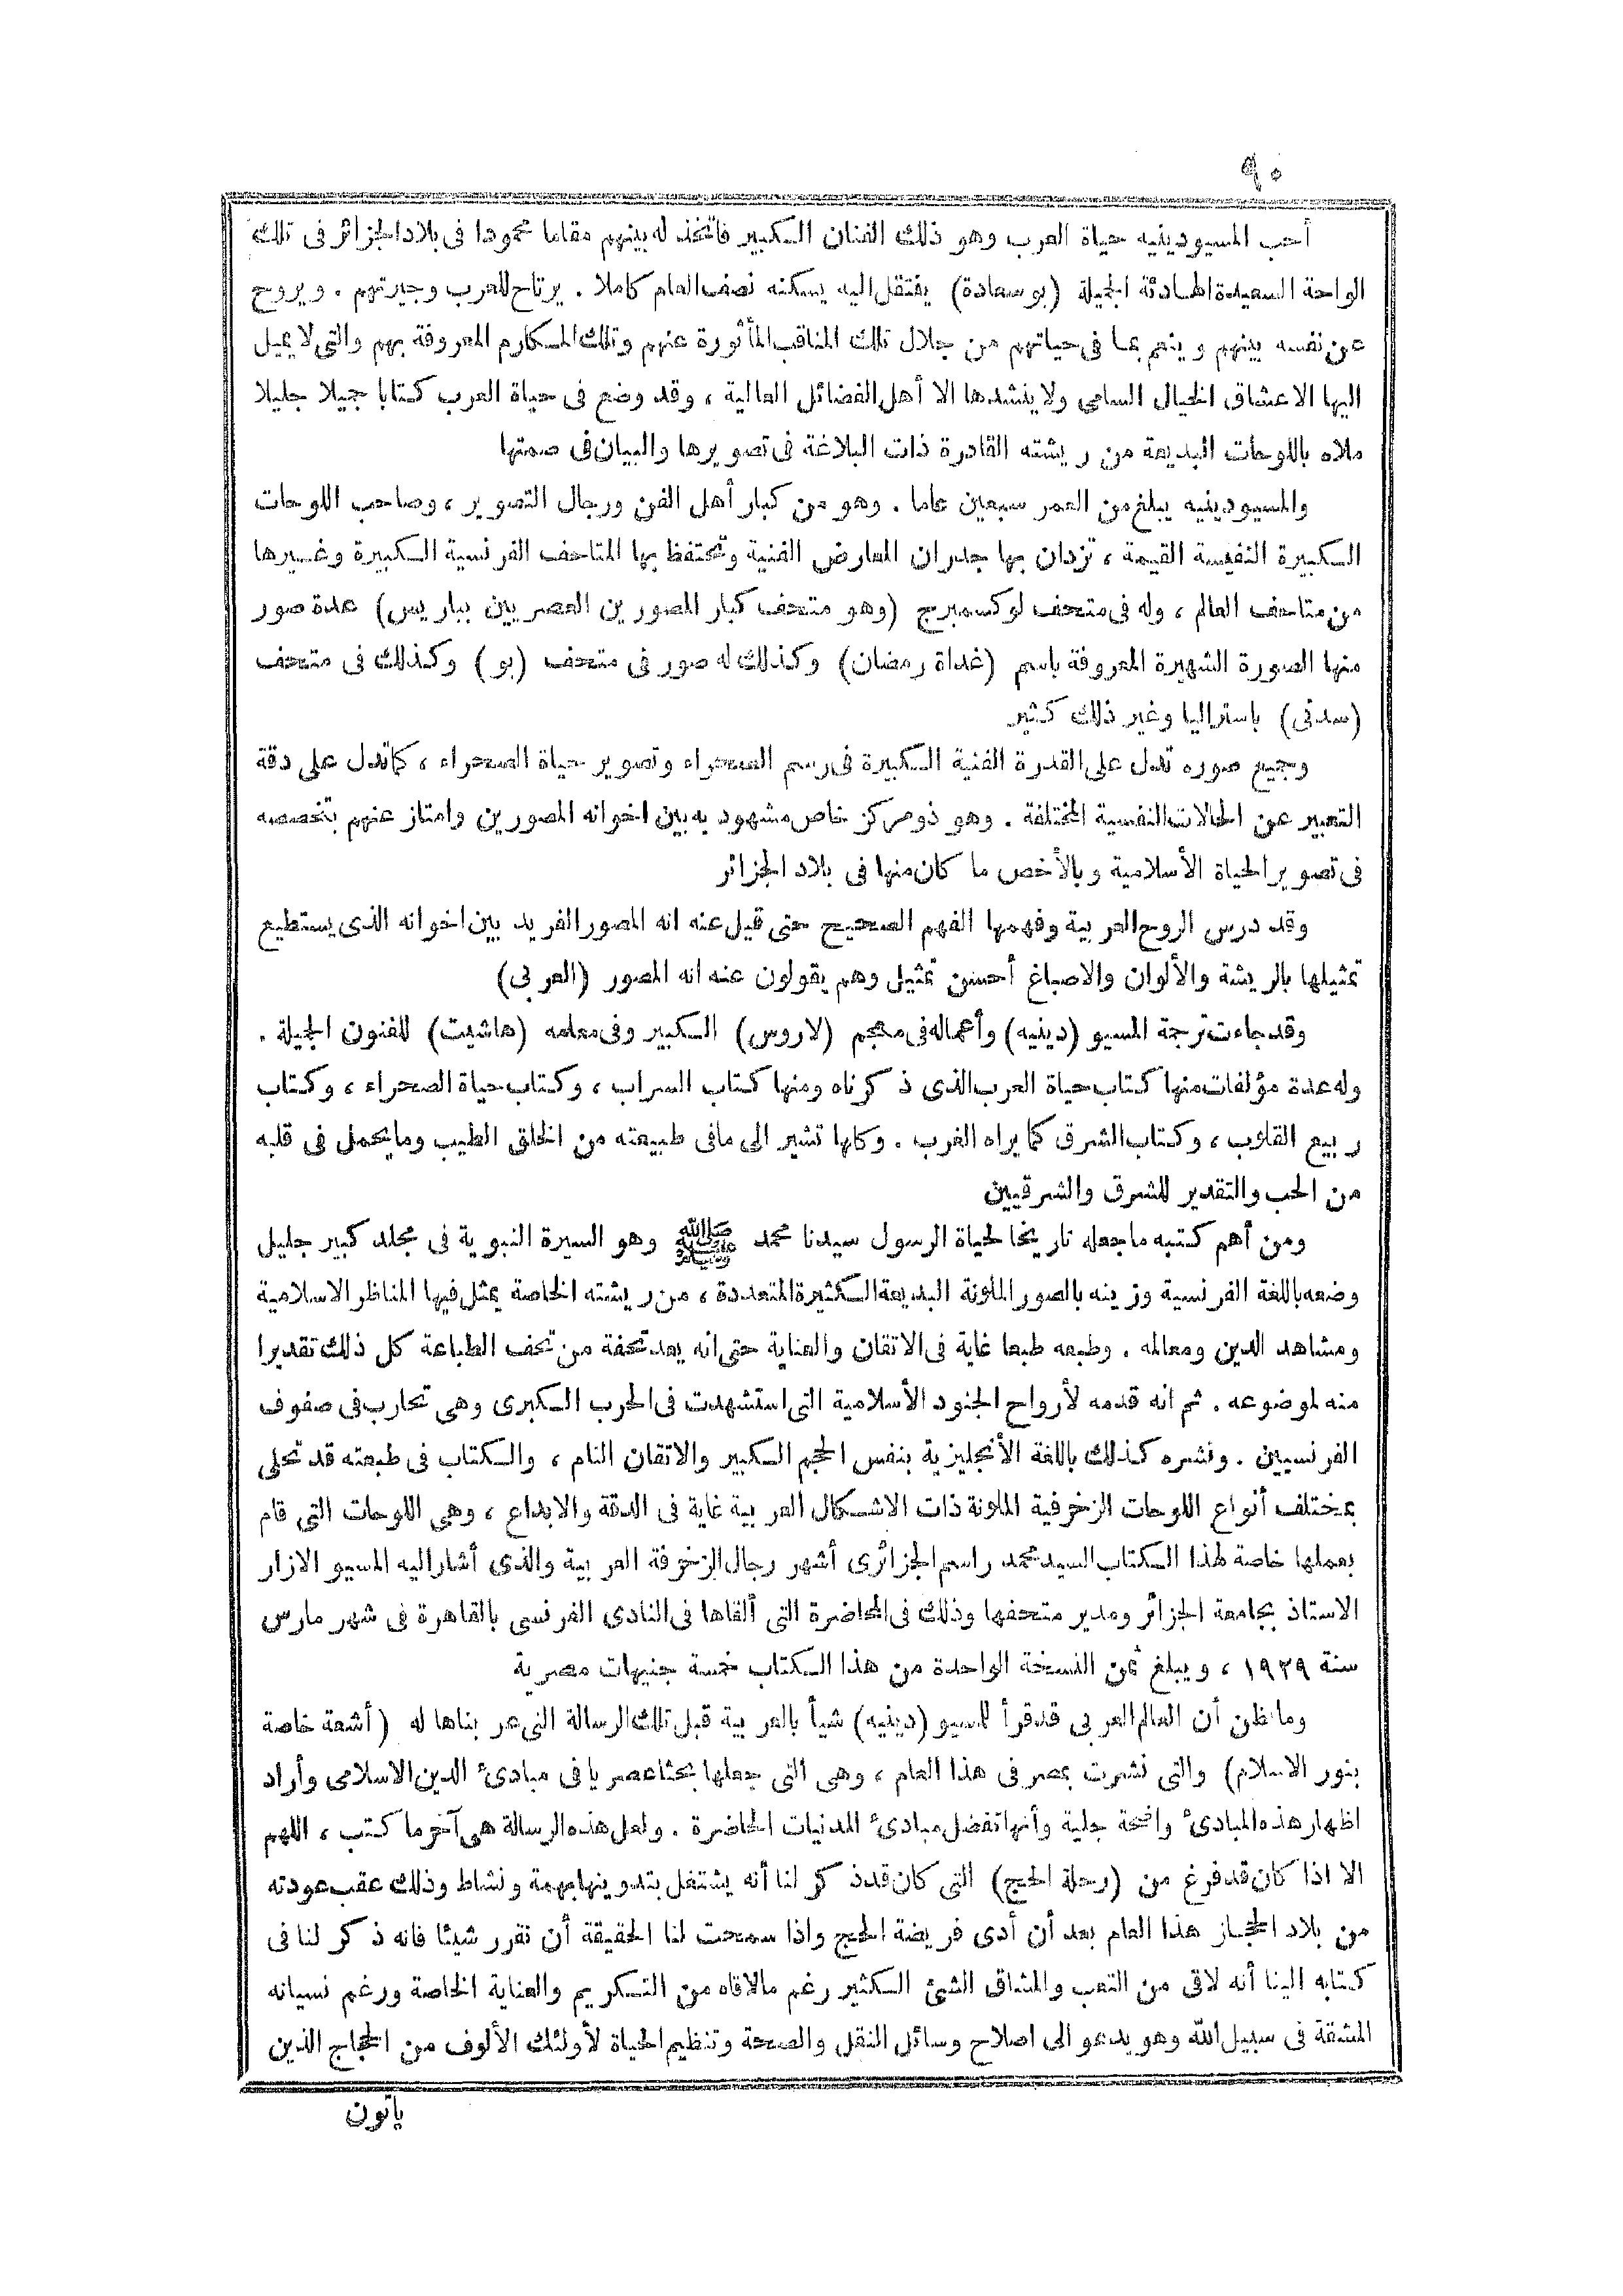 ٩٠
أحب المسيو دينيه حياة العرب وهو ذلك الفنان الكبير فاتخذ له بينهم مقاما محمودا فى بلاد الجزائر فى تلك
الواحة السعيدة الهادئة الجميلة (بو سعادة) ينتقل اليه يسكنه نصف العام كاملا . يرتاح للعرب وجيرتهم . ويروح
عن نفسه بينهم وينعم بما فى حياتهم من جلال تلك المناقب المأثورة عنهم وتلك المكارم المعروفة بهم والتى لا يميل
اليها الا عشاق الخيال السامى ولا ينشدها الا أهل الفضائل العالية ، وقد وضع فى حياة العرب كتابا جميلا جليلا
ملاه باللوحات البديعة من ريشته القادرة ذات البلاغة فى تصويرها والبيان فى صمتها
والمسيو دينيه يبلغ من العمر سبعين عاما . وهو من كبار أهل الفن ورجال التصوير ، وصاحب اللوحات
الكبيرة النفيسة القيمة ، تزدان بها جدران المعارض الفنية وتحتفظ بها المتاحف الفرنسية الكبيرة وغيرها
من متاحف العالم ، وله فى متحف لوكسمبرج (وهو متحف كبار المصورين العصريين بباريس) عدة صور
منها الصورة الشهيرة المعروفة باسم (غداة رمضان) وكذلك له صور فى متحف (بو) وكذلك فى متحف
(سدنى) باستراليا وغير ذلك كثير
وجميع صوره تدل على القدرة الفنية الكبيرة فى رسم الصحراء وتصوير حياة الصحراء ، كما تدل على دقة
التعبير عن الحالات النفسية المختلفة . وهو ذو مركز خاص مشهود به بين اخوانه المصورين وامتاز عنهم بتخصصه
فى تصوير الحياة الأسلامية وبالأخص ما كان منها فى بلاد الجزائر
وقد درس الروح العربية وفهمها الفهم الصحيح حتى قيل عنه انه المصور الفريد بين اخوانه الذى يستطيع
تمثيلها بالريشة والألوان والاصباغ أحسن تمثيل وهم يقولون عنه انه المصور (العربى)
وقد جاءت ترجمة المسيو (دينيه) وأعماله فى معجم (لاروس) الكبير وفى معلمه (هاشيت) للفنون الجميلة .
وله عدة مؤلفات منها كتاب حياة العرب الذى ذكرناه ومنها كتاب السراب ، وكتاب حياة الصحراء ، وكتاب
ربيع القلوب ، وكتاب الشرق كما يراه الغرب . وكلها تشير الى ما فى طبيعته من الخلق الطيب وما يحمل فى قلبه
من الحب والتقدير للشرق والشرقيين
ومن أهم كتبه ما جعله تاريخا لحياة الرسول سيدنا محمد ﷺ وهو السيرة النبوية فى مجلد كبير جليل
وضعه باللغة الفرنسية وزينه بالصور الملونة البديعة الكثيرة المتعددة ، من ريشته الخاصة يمثل فيها المناظر الاسلامية
ومشاهد الدين ومعالمه . وطبعه طبعا غاية فى الاتقان والعناية حتى انه يعد تحفة من تحف الطباعة كل ذلك تقديرا
منه لموضوعه . ثم انه قدمه لأرواح الجنود الأسلامية التى استشهدت فى الحرب الكبرى وهى تحارب فى صفوف
الفرنسيين . ونشره كذلك باللغة الأنجليزية بنفس الحجم الكبير والاتقان التام ، والكتاب فى طبعته قد تحلى
بمختلف أنواع اللوحات الزخرفية الملونة ذات الاشكال العربية غاية فى الدقة والابداع ، وهى اللوحات التى قام
بعملها خاصة لهذا الكتاب السيد محمد راسم الجزائرى أشهر رجال الزخرفة العربية والذى أشار اليه المسيو الازار
الاستاذ بجامعة الجزائر ومدير متحفها وذلك فى المحاضرة التى ألقاها فى النادى الفرنسى بالقاهرة فى شهر مارس
سنة ١٩٢٩ ، ويبلغ ثمن النسخة الواحدة من هذا الكتاب خمسة جنيهات مصرية
وما نظن أن العالم العربى قد قرأ للمسيو (دينيه) شيأ بالعربية قبل تلك الرسالة التى عربناها له (أشعة خاصة
بنور الاسلام) والتى نشرت بمصر فى هذا العام ، وهى التى جعلها بحثا عصريا فى مبادئ الدين الاسلامى وأراد
اظهار هذه المبادئ واضحة جلية وأنها تفضل مبادئ المدنيات الحاضرة . ولعل هذه الرسالة هى آخر ما كتب ، اللهم
الا اذا كان قد فرغ من (رحلة الحج) التى كان قد ذكر لنا أنه يشتغل بتدوينها بهمة ونشاط وذلك عقب عودته
من بلاد الحجاز هذا العام بعد أن أدى فريضة الحج واذا سمحت لنا الحقيقة أن نقرر شيئا فانه ذكر لنا فى
كتابه الينا أنه لاقى من التعب والمشاق الشئ الكثير رغم مالاقاه من التكريم والعناية الخاصة ورغم نسيانه
المشقة فى سبيل الله وهو يدعو الى اصلاح وسائل النقل والصحة وتنظيم الحياة لأولئك الألوف من الحجاج الذين
يأتون